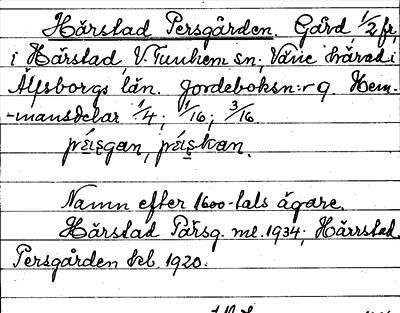 Hårstad Persgården. Gård, 1/2 fr,
i Hårstad, V. Tunhem sn; Väne härad i
Älfsborgs län. Jordeboksn:r 9. Hem-
-mansdelar 1/4; 1/16; 3/16.
Namn efter 1600-tals ägare.
Hårstad Pårsg. me. 1934; Hårrstad
Persgården Geb. 1920.